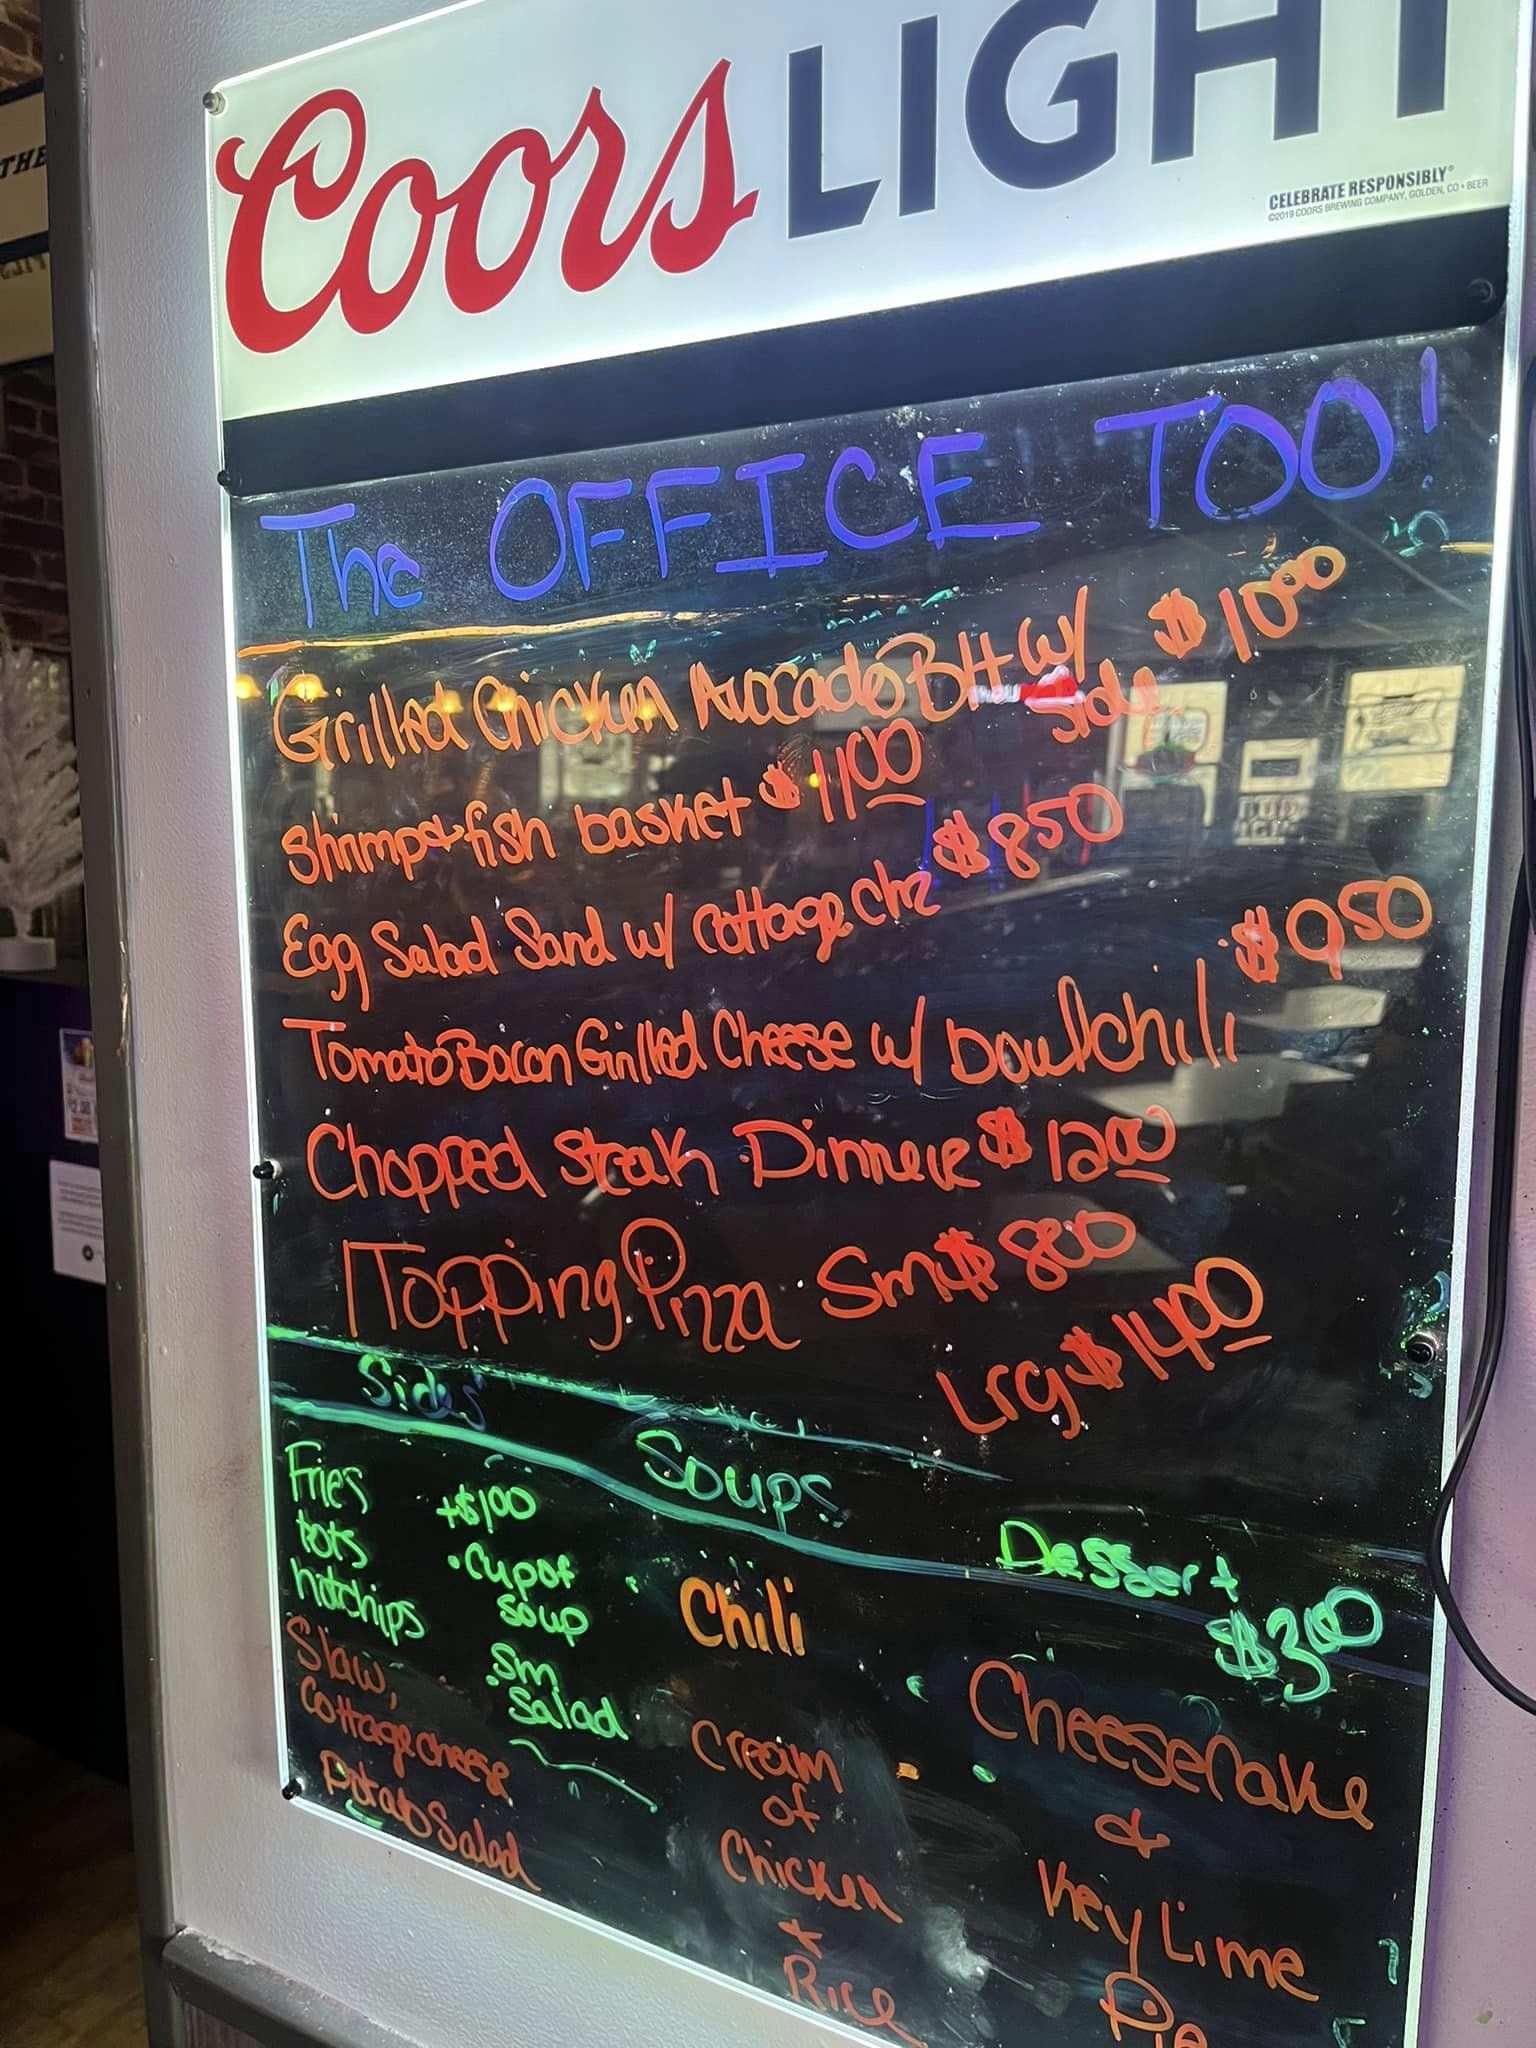 Coors LIGHT
CELEBRATE RESPONSIBLY®
©2019 COORS BREWING COMPANY, GOLDEN, CO • BEER
THE
The OFFICE TOO!
Grilled Chicken Avocado BLT w/ side $10.00
Shrimp & fish basket $11.00
Egg Salad Sand w/ Cottage Chz $8.50
Tomato Bacon Grilled Cheese w/ bowl chili $9.50
Chopped Steak Dinner $12.00
1 Topping Pizza Sm $8.00
Lrg $14.00
Sides
Fries
tots
hotchips
Slaw,
Cottage cheese
Potato Salad
+$1.00
• Cup of
soup
• sm
salad
Soups
Chili
Cream
of
Chicken
&
Rice
Dessert
$3.00
Cheesecake
&
Key Lime
Pie